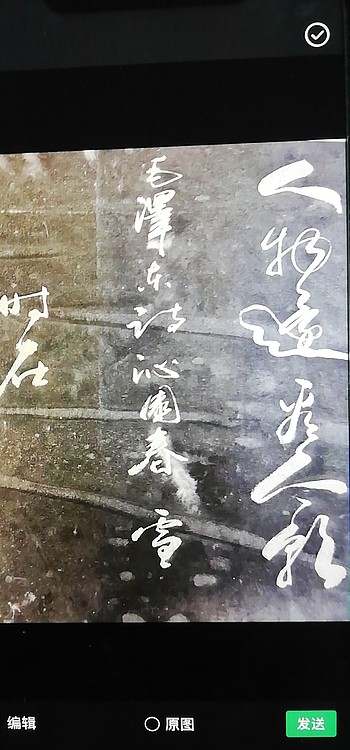 人物還看今朝
毛澤东诗沁園春雪
时在
编辑
原图
发送